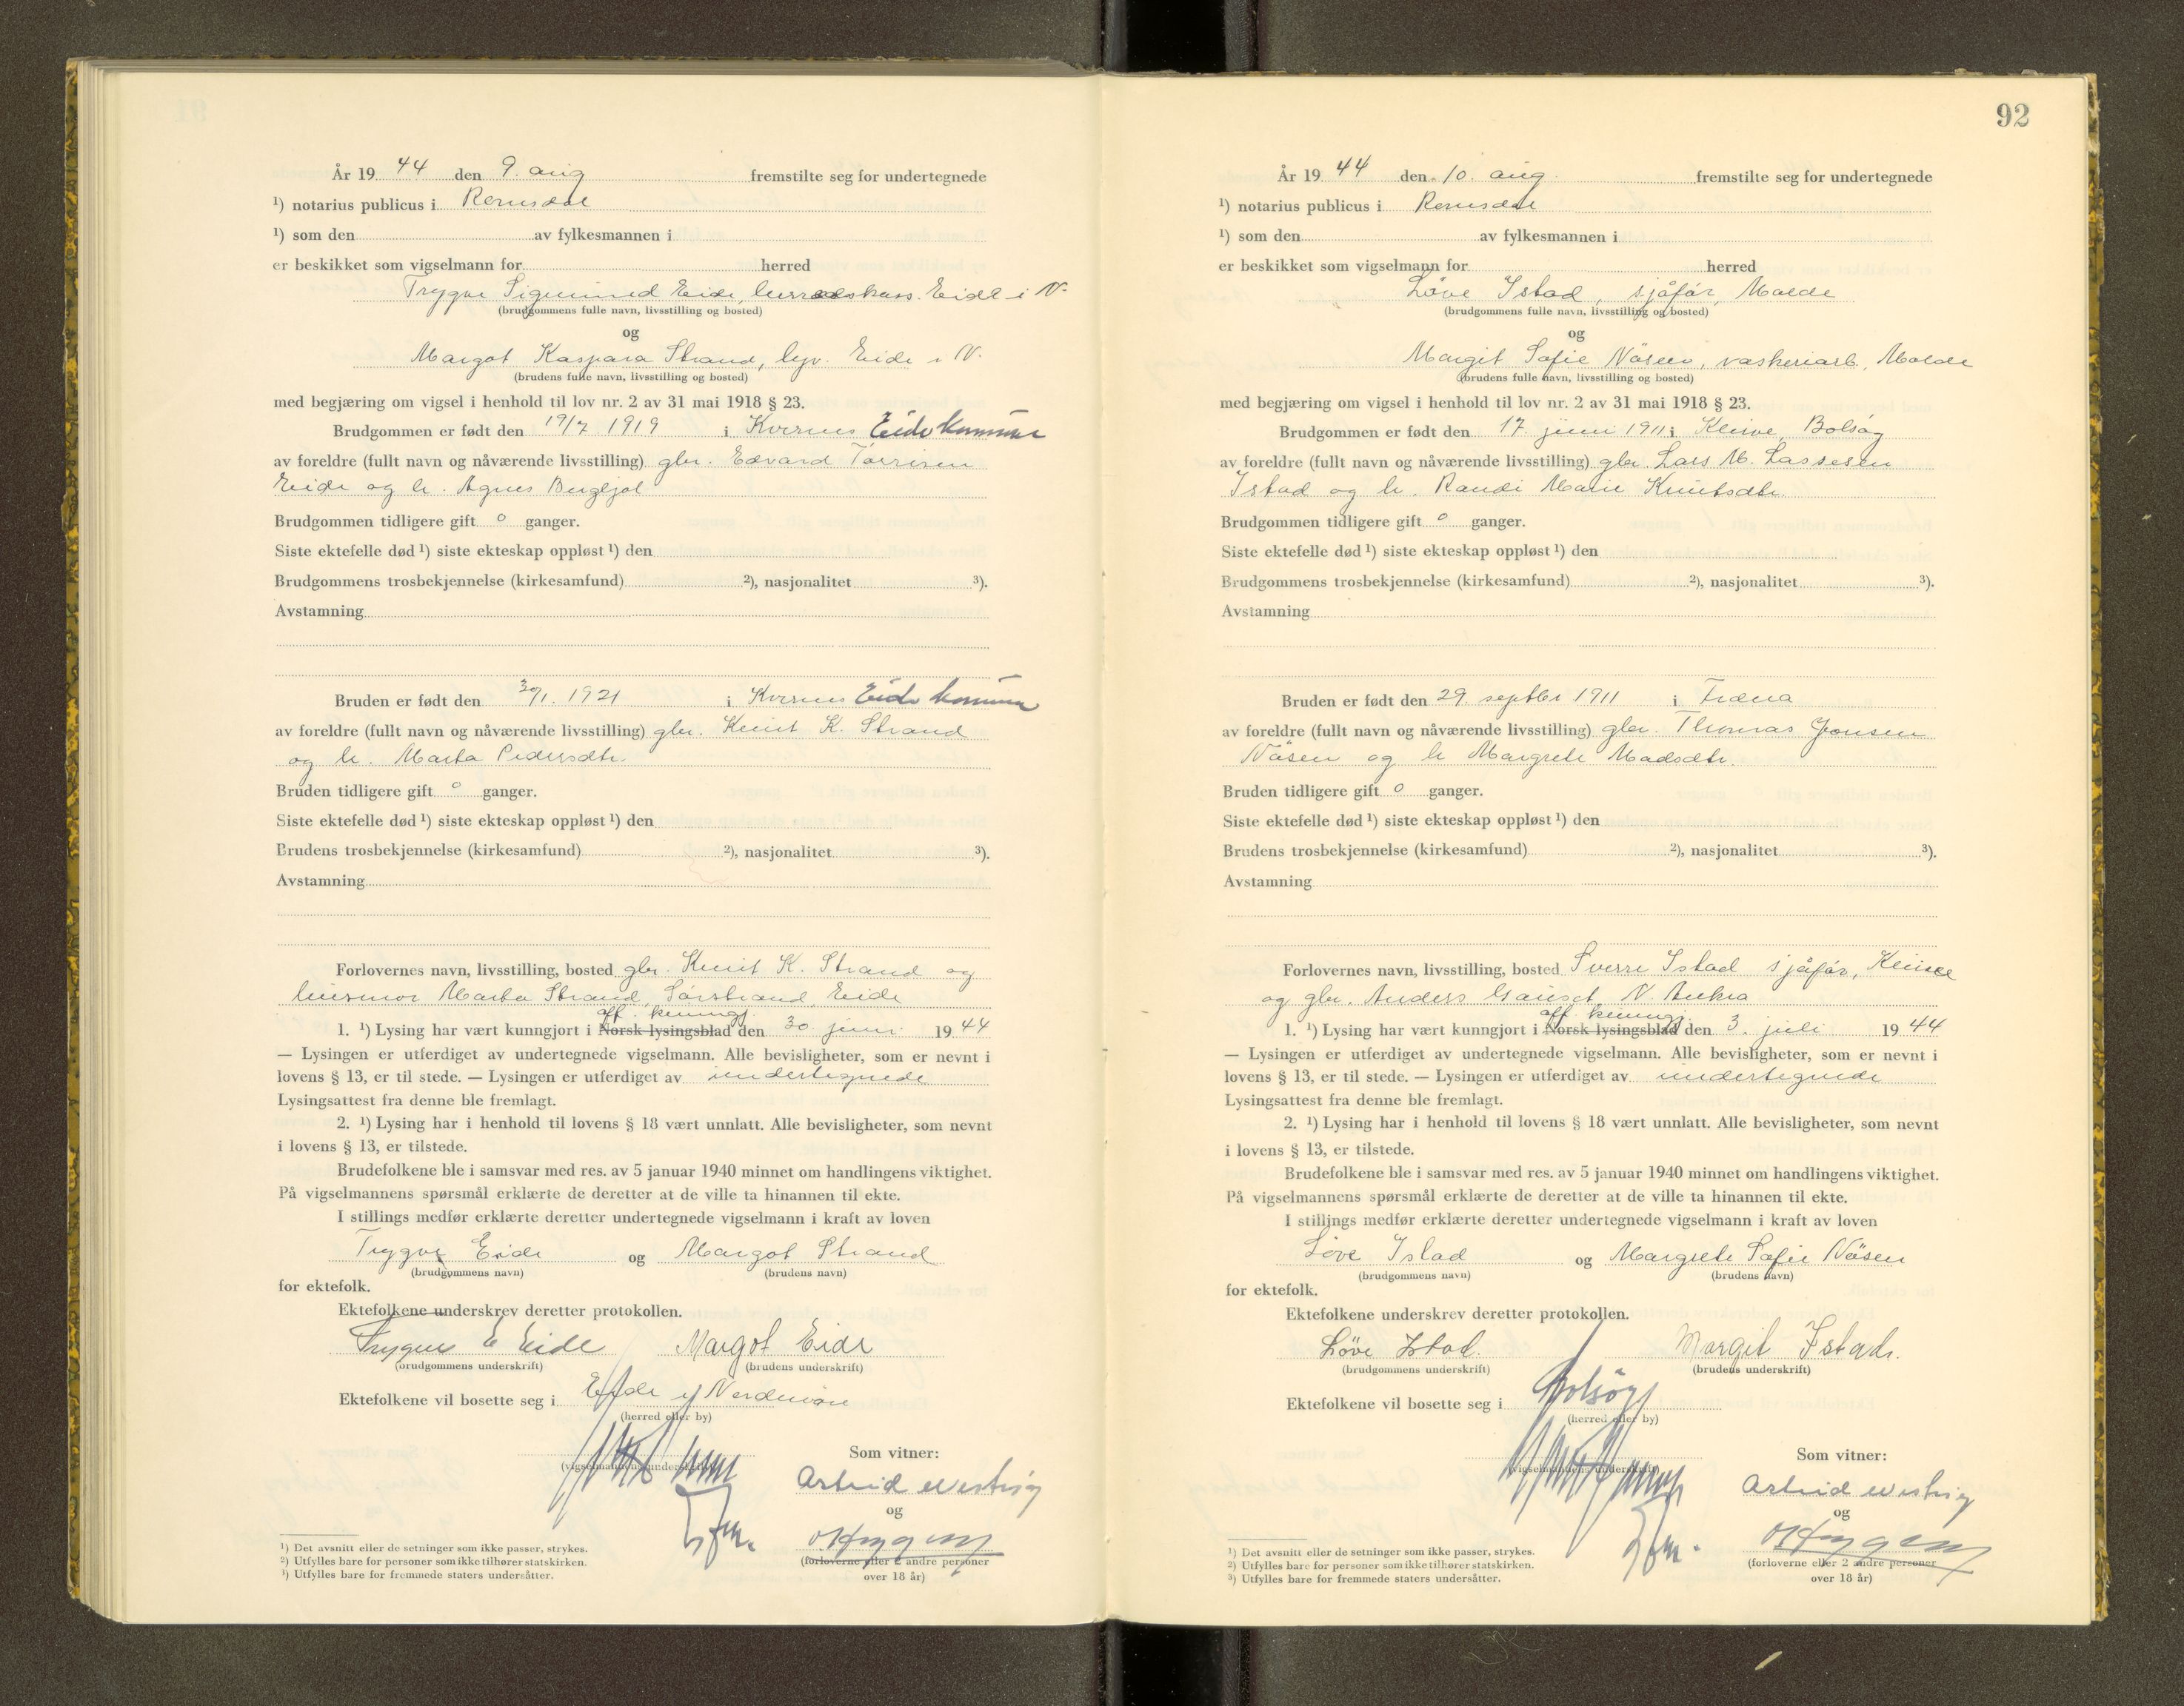 År 19 44 den 9. aug fremstilte seg for undertegnede
¹) notarius publicus i Romsdal
¹) som den av fylkesmannen i
er beskikket som vigselmann for herred
Trygve Sigmund Eide, herredskass. Eide i N.
(brudgommens fulle navn, livsstilling og bosted)
og
Margot Kaspara Strand, Eide i N.
(brudens fulle navn, livsstilling og bosted)
med begjæring om vigsel i henhold til lov nr. 2 av 31 mai 1918 § 23.
Brudgommen er født den 19/7 1919 i Kvernes Eide kommune
av foreldre (fullt navn og nåværende livsstilling) gbr. Edvard
Eide og h. Agnes
Brudgommen tidligere gift 0 ganger.
Siste ektefelle død ¹) siste ekteskap oppløst ¹) den
Brudgommens trosbekjennelse (kirkesamfund) ²), nasjonalitet ³).
Avstamning
Bruden er født den 30/1. 1921 i Kvernes Eide kommune
av foreldre (fullt navn og nåværende livsstilling) gbr. Knut K. Strand
og h. Marta Pedersdtr.
Bruden tidligere gift 0 ganger.
Siste ektefelle død ¹) siste ekteskap oppløst ¹) den
Brudens trosbekjennelse (kirkesamfund) ²), nasjonalitet ³).
Avstamning
Forlovernes navn, livsstilling, bosted gbr. Knut K. Strand og
husmor Marta Strand, Sørstrand, Eide
off. kunngj.
1. ¹) Lysing har vært kunngjort i Norsk lysingsblad den 30. juni 19 44
— Lysingen er utferdiget av undertegnede vigselmann. Alle bevisligheter, som er nevnt i
lovens § 13, er til stede. — Lysingen er utferdiget av undertegnede
Lysingsattest fra denne ble fremlagt.
2. ¹) Lysing har i henhold til lovens § 18 vært unnlatt. Alle bevisligheter, som nevnt
i lovens § 13, er tilstede.
Brudefolkene ble i samsvar med res. av 5 januar 1940 minnet om handlingens viktighet.
På vigselmannens spørsmål erklærte de deretter at de ville ta hinannen til ekte.
I stillings medfør erklærte deretter undertegnede vigselmann i kraft av loven
Trygve Eide og Margot Strand
(brudgommens navn) (brudens navn)
for ektefolk.
Ektefolkene underskrev deretter protokollen.
Trygve E Eide Margot Eide
(brudgommens underskrift) (brudens underskrift)
Ektefolkene vil bosette seg i Eide i Nordmøre
(herred eller by)
Som vitner:
(vigselmannens underskrift)
Astrid
og
(forloverne eller 2 andre personer
over 18 år)
¹) Det avsnitt eller de setninger som ikke passer, strykes.
²) Utfylles bare for personer som ikke tilhører statskirken.
³) Utfylles bare for fremmede staters undersåtter.
92
År 19 44 den 10. aug. fremstilte seg for undertegnede
¹) notarius publicus i Romsdal
¹) som den av fylkesmannen i
er beskikket som vigselmann for herred
Løve Istad, sjåfør, Molde
(brudgommens fulle navn, livsstilling og bosted)
og
Margit Sofie Nåsen, vaskeriarb., Molde
(brudens fulle navn, livsstilling og bosted)
med begjæring om vigsel i henhold til lov nr. 2 av 31 mai 1918 § 23.
Brudgommen er født den 17. juni 1911 i Kleive, Bolsøy
av foreldre (fullt navn og nåværende livsstilling) gbr. Lars M. Lassesen
Istad og h. Randi Marie Knutsdtr.
Brudgommen tidligere gift 0 ganger.
Siste ektefelle død ¹) siste ekteskap oppløst ¹) den
Brudgommens trosbekjennelse (kirkesamfund) ²), nasjonalitet ³).
Avstamning
Bruden er født den 29. septbr 1911 i Fræna
av foreldre (fullt navn og nåværende livsstilling) gbr. Thomas Jonsen
Nåsen og h Margrete Madsdtr.
Bruden tidligere gift 0 ganger.
Siste ektefelle død ¹) siste ekteskap oppløst ¹) den
Brudens trosbekjennelse (kirkesamfund) ²), nasjonalitet ³).
Avstamning
Forlovernes navn, livsstilling, bosted Sverre Istad sjåfør, Kleive
og gbr. Anders Gauset, N. Aukra
off. kunngj.
1. ¹) Lysing har vært kunngjort i Norsk lysingsblad den 3. juli 19 44
— Lysingen er utferdiget av undertegnede vigselmann. Alle bevisligheter, som er nevnt i
lovens § 13, er til stede. — Lysingen er utferdiget av undertegnede
Lysingsattest fra denne ble fremlagt.
2. ¹) Lysing har i henhold til lovens § 18 vært unnlatt. Alle bevisligheter, som nevnt
i lovens § 13, er tilstede.
Brudefolkene ble i samsvar med res. av 5 januar 1940 minnet om handlingens viktighet.
På vigselmannens spørsmål erklærte de deretter at de ville ta hinannen til ekte.
I stillings medfør erklærte deretter undertegnede vigselmann i kraft av loven
Løve Istad og Margrete Sofie Nåsen
(brudgommens navn) (brudens navn)
for ektefolk.
Ektefolkene underskrev deretter protokollen.
Løve Istad. Margit Istad.
(brudgommens underskrift) (brudens underskrift)
Ektefolkene vil bosette seg i Bolsøy
(herred eller by)
Som vitner:
(vigselmannens underskrift)
Astrid
og
(forloverne eller 2 andre personer
over 18 år)
¹) Det avsnitt eller de setninger som ikke passer, strykes.
²) Utfylles bare for personer som ikke tilhører statskirken.
³) Utfylles bare for fremmede staters undersåtter.